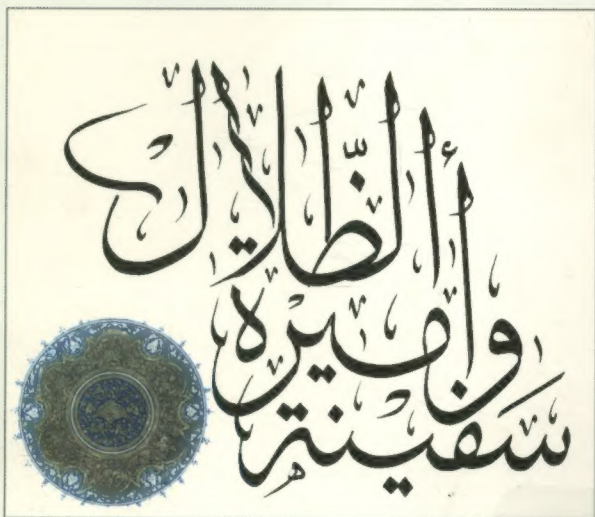 سفينة
وأميرة
الظّلال